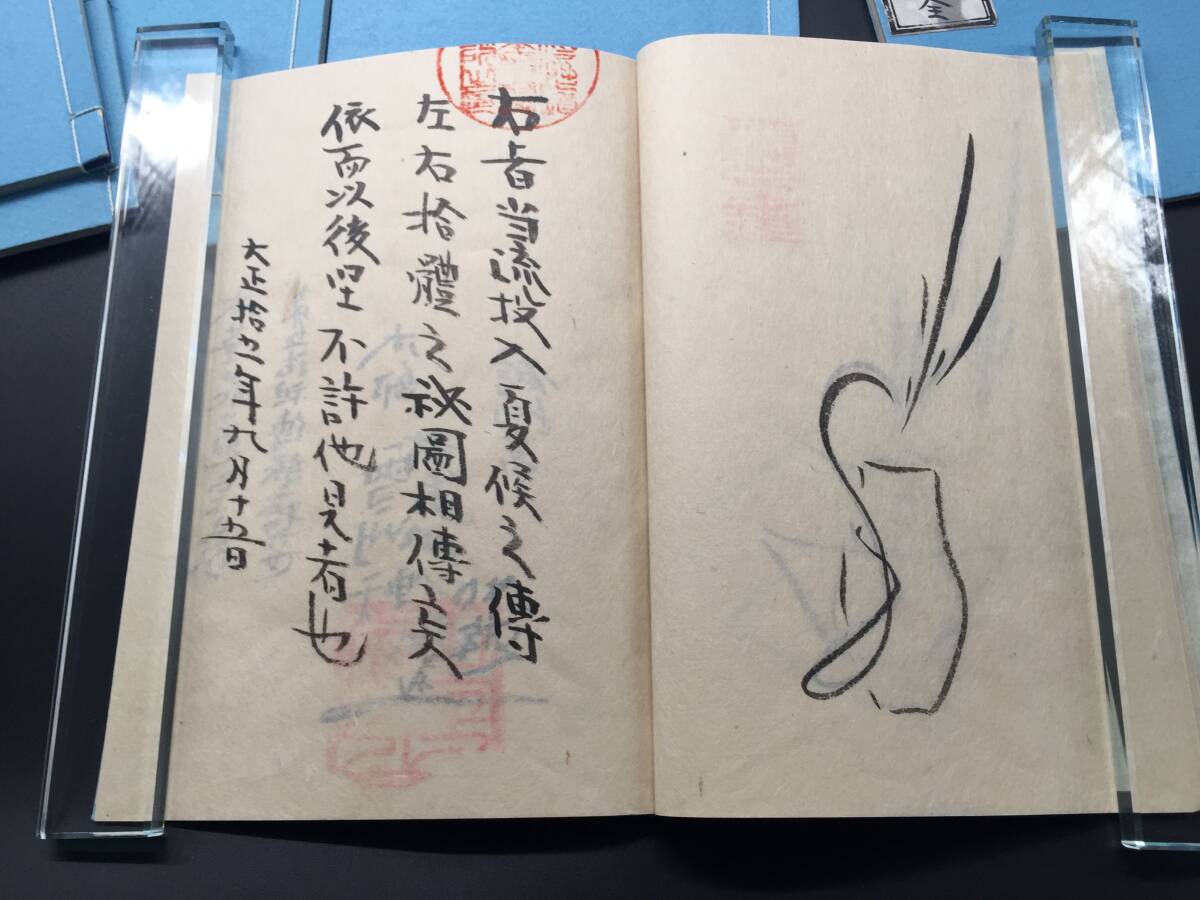 右者当流投入夏候之傳
左右拾體之祕圖相傳之矣
依而以後堅不許他見者也
大正拾五年九月十五日
全